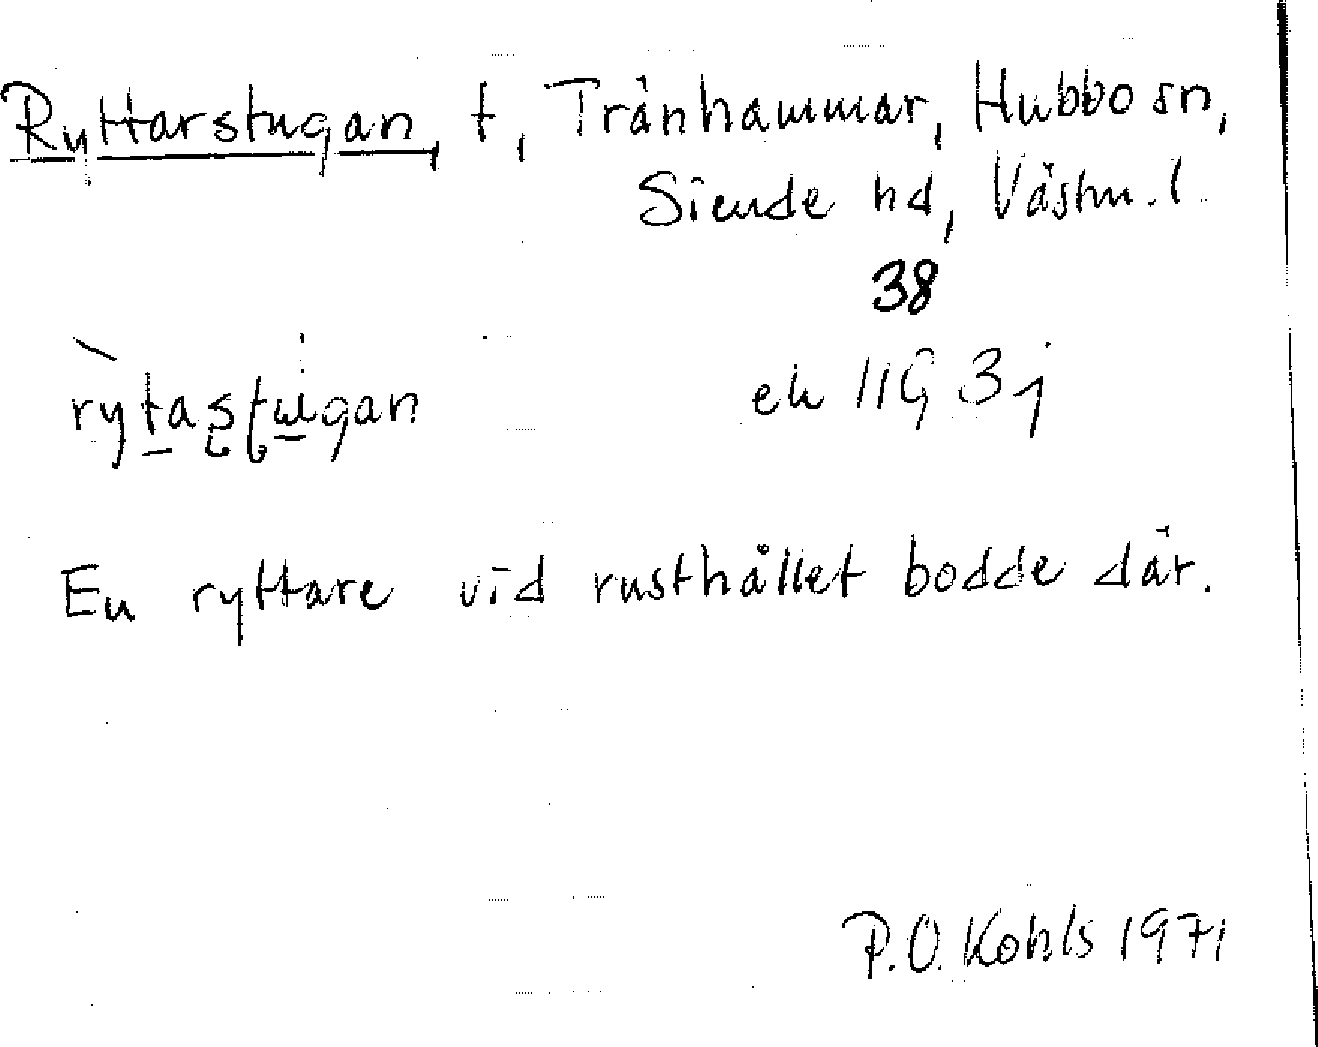 Ryttarstugan, t, Trånhammar, Hubbo sn,
Siende hd, Västm.l.
38
rỳtastugan ek 11G 3j
En ryttare vid rusthållet bodde där.
P.O. Kohls 1971